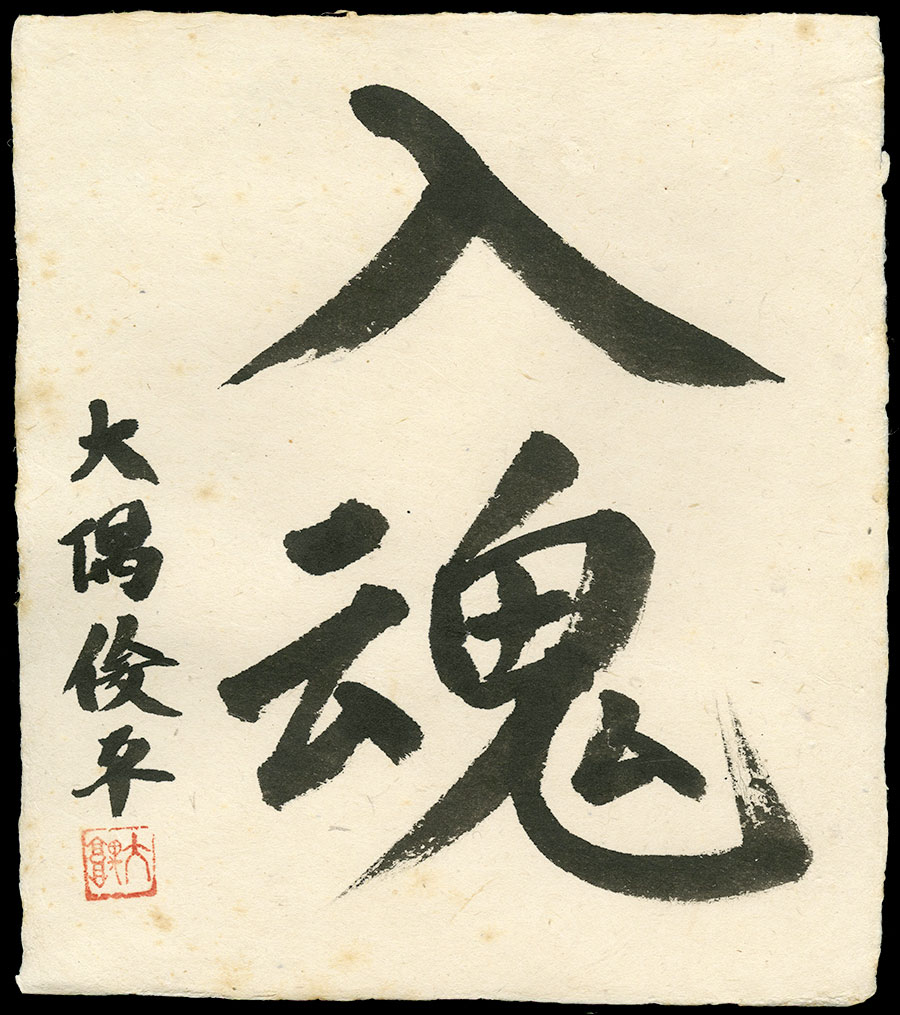 入魂
大隅俊平